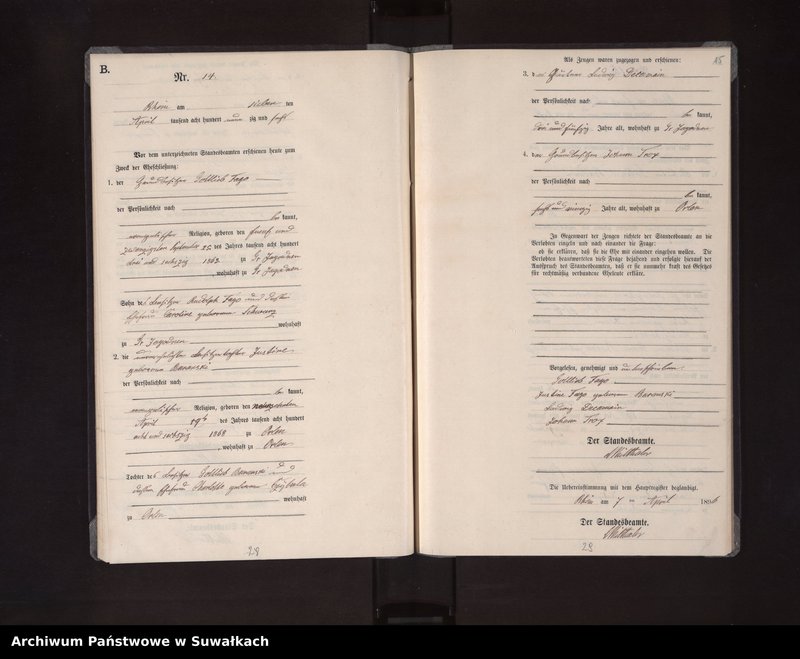 B.
Nr. 14.
Rhein am sieben ten
April tausend acht hundert neun zig und sechs
Vor dem unterzeichneten Standesbeamten erschienen heute zum
Zweck der Eheschließung:
1. der Grundbesitzer Gottlieb Fago
der Persönlichkeit nach
be kannt,
evangelischer Religion, geboren den fünf und
zwanzigsten September 25 des Jahres tausend acht hundert
drei und sechszig 1863 zu Gr. Jagodnen
, wohnhaft zu Gr. Jagodnen
Sohn des Besitzer Rudolph Fago und dessen
Ehefrau Caroline geborene
wohnhaft
zu Gr. Jagodnen
2. die unverehelichte Besitzertochter Justine
geborene Baronski
der Persönlichkeit nach
be kannt,
evangelischer Religion, geboren den neunzehnten
April 19 des Jahres tausend acht hundert
acht und sechszig 1868 zu Orlen
, wohnhaft zu Orlen
Tochter des Besitzer Gottlieb Baronski und
dessen Ehefrau Charlotte geborene Czybulla
wohnhaft
zu Orlen
28
Als Zeugen waren zugezogen und erschienen:
15
3. der Ludwig
der Persönlichkeit nach
be kannt,
drei und fünfzig Jahre alt, wohnhaft zu Gr. Jagodnen
4. der Grundbesitzer Johann Trox
der Persönlichkeit nach
be kannt,
sechs und vierzig Jahre alt, wohnhaft zu Orlen
In Gegenwart der Zeugen richtete der Standesbeamte an die
Verlobten einzeln und nach einander die Frage:
ob sie erklären, daß sie die Ehe mit einander eingehen wollen. Die
Verlobten beantworteten diese Frage bejahend und erfolgte hierauf der
Ausspruch des Standesbeamten, daß er sie nunmehr kraft des Gesetzes
für rechtmäßig verbundene Eheleute erkläre.
Vorgelesen, genehmigt und unterschrieben
Gottlieb Fago
Justine Fago geborene Baronski
Ludwig
Johann Trox
Der Standesbeamte.
Die Uebereinstimmung mit dem Hauptregister beglaubigt.
Rhein am 7 ten April 1896
Der Standesbeamte.
29
Archiwum Państwowe w Suwałkach